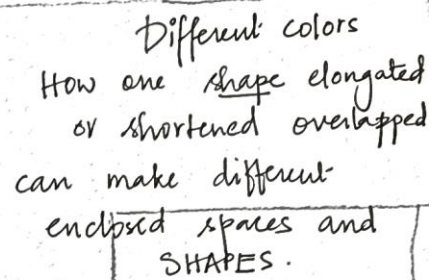 Different colors
How one shape elongated
or shortened overlapped
can make different
enclosed spaces and
SHAPES.